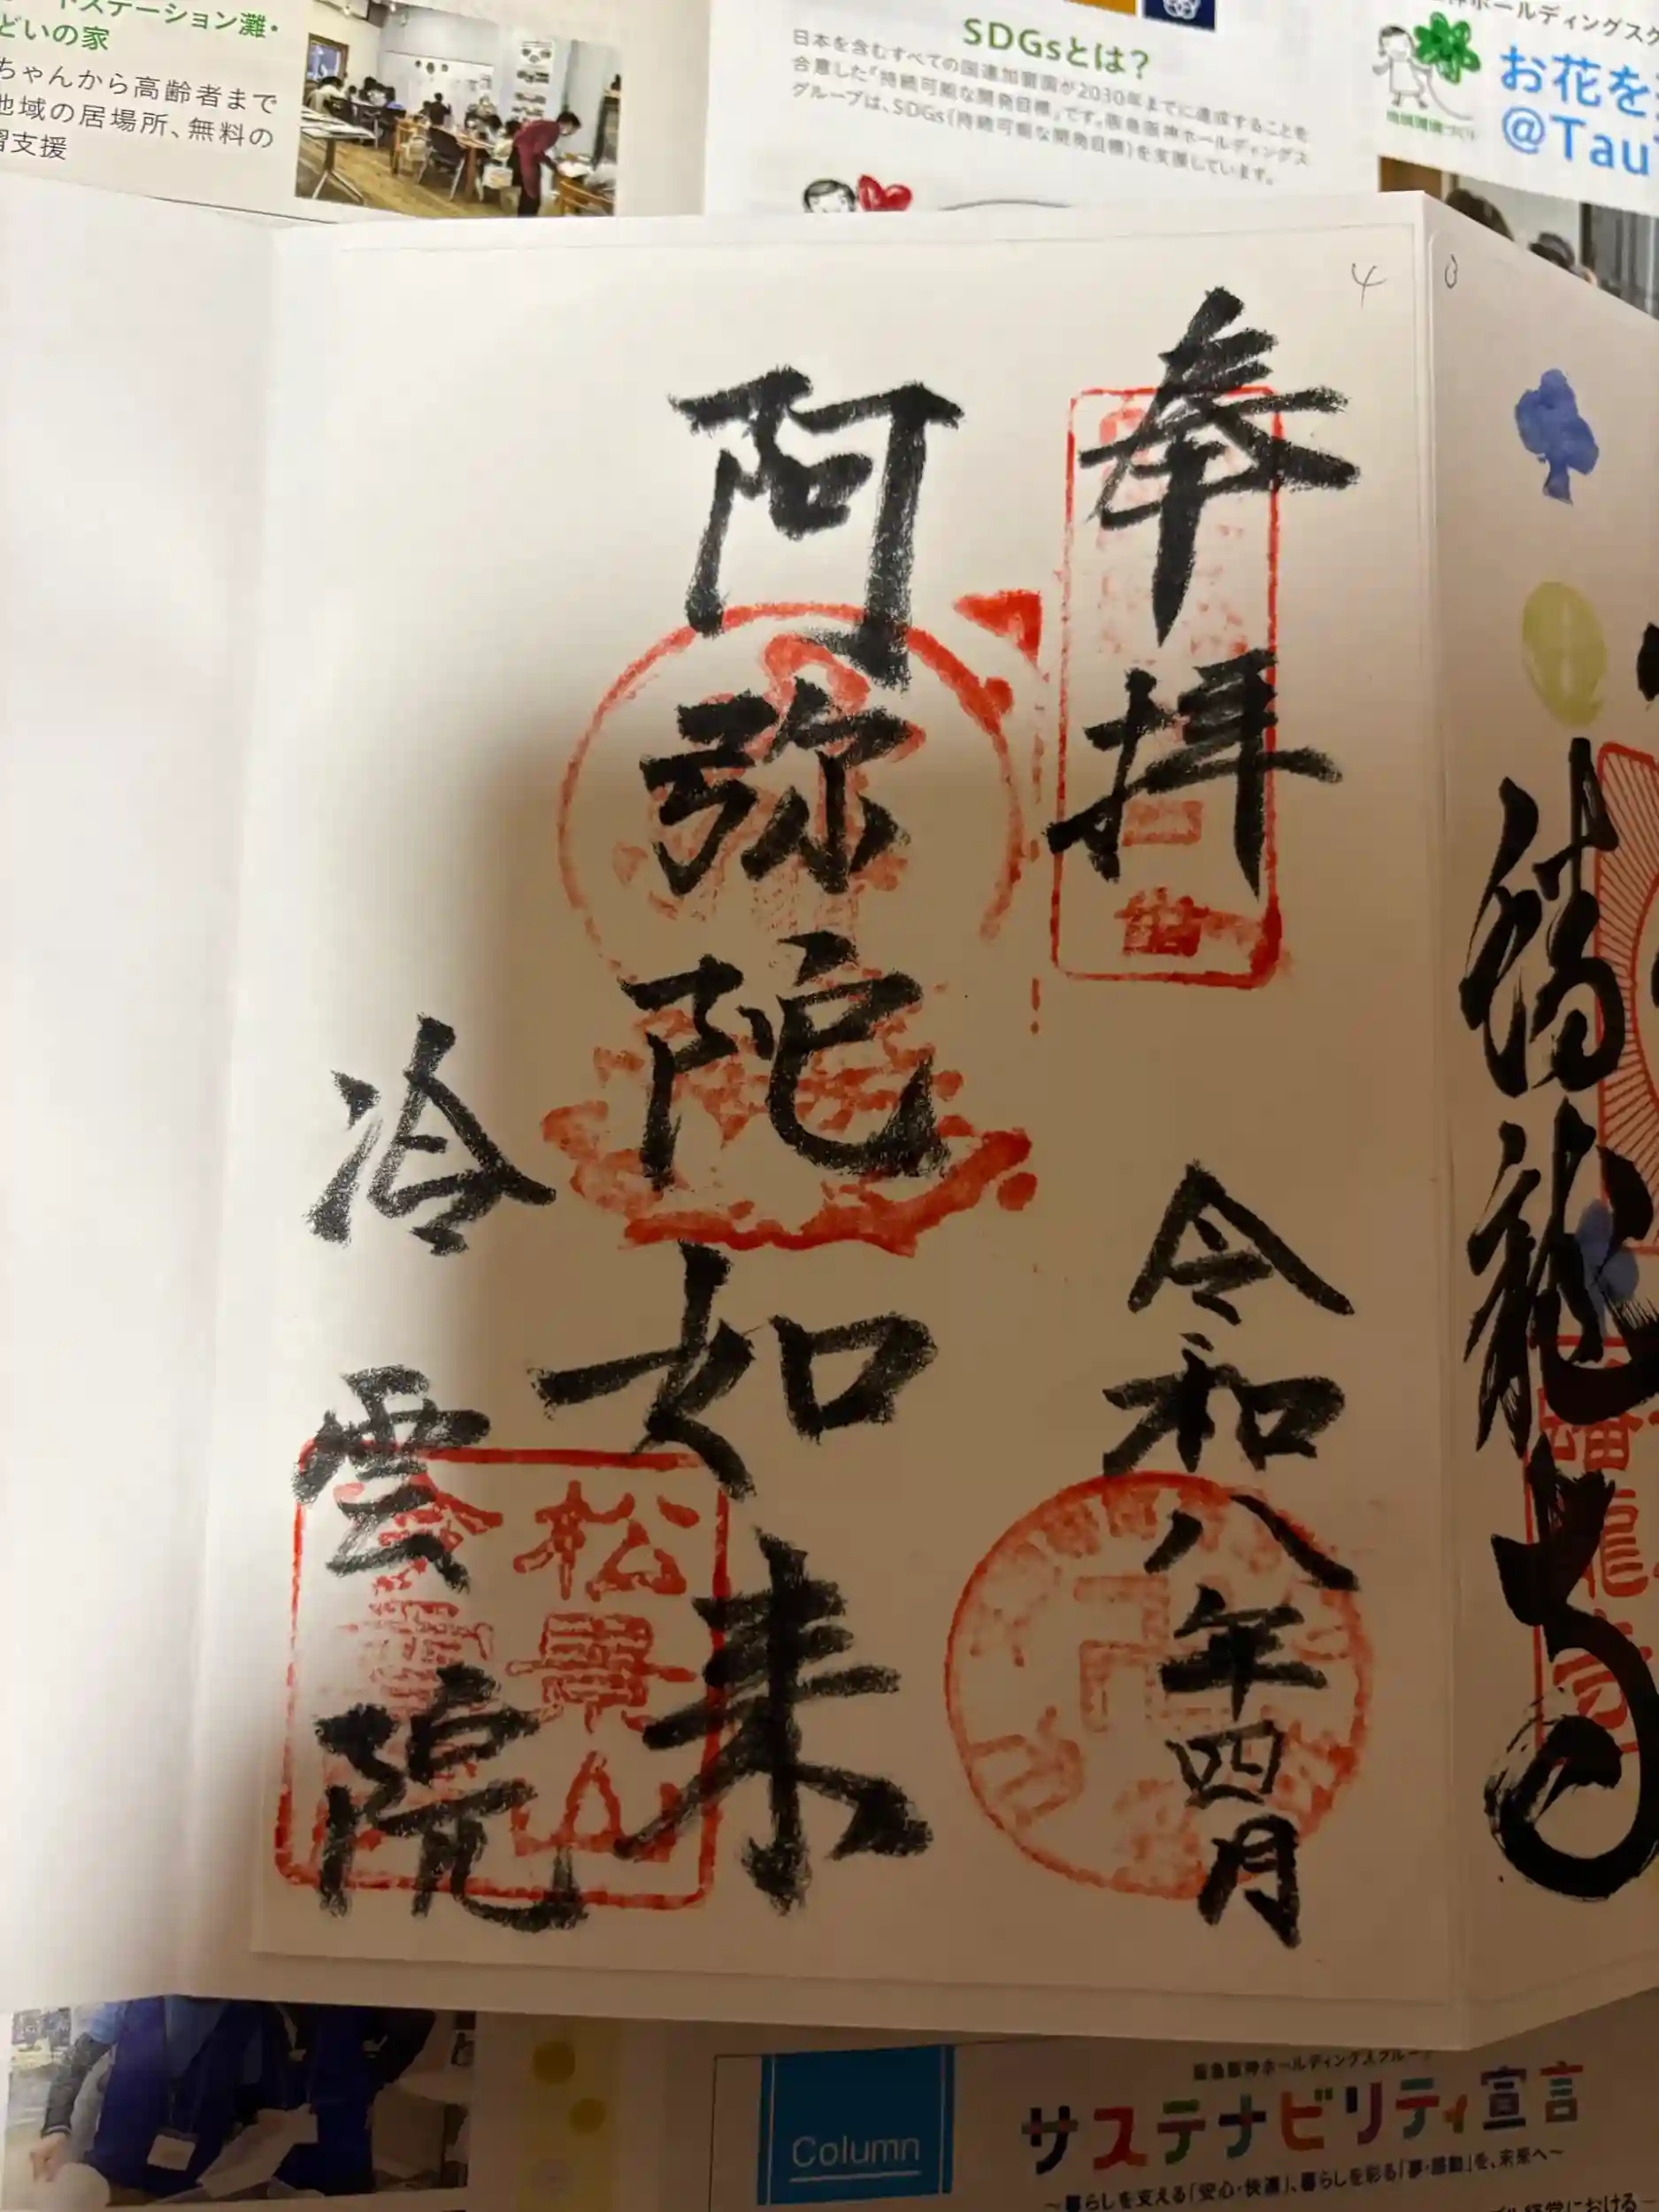 ートステーション灘・
どいの家
ちゃんから高齢者まで
地域の居場所、無料の
習支援
SDGsとは?
日本を含むすべての国連加盟国が2030年までに達成することを
合意した「持続可能な開発目標」です。阪急阪神ホールディングス
グループは、SDGs(持続可能な開発目標)を支援しています。
神ホールディングスグ
お花を
@Tau
4
3
奉拝
令和八年四月
阿弥陀如来
冷雲院
松華山
龍
Column
阪急阪神ホールディングスグループ
サステナビリティ宣言
~暮らしを支える「安心・快適」、暮らしを彩る「夢・感動」を、未来へ~